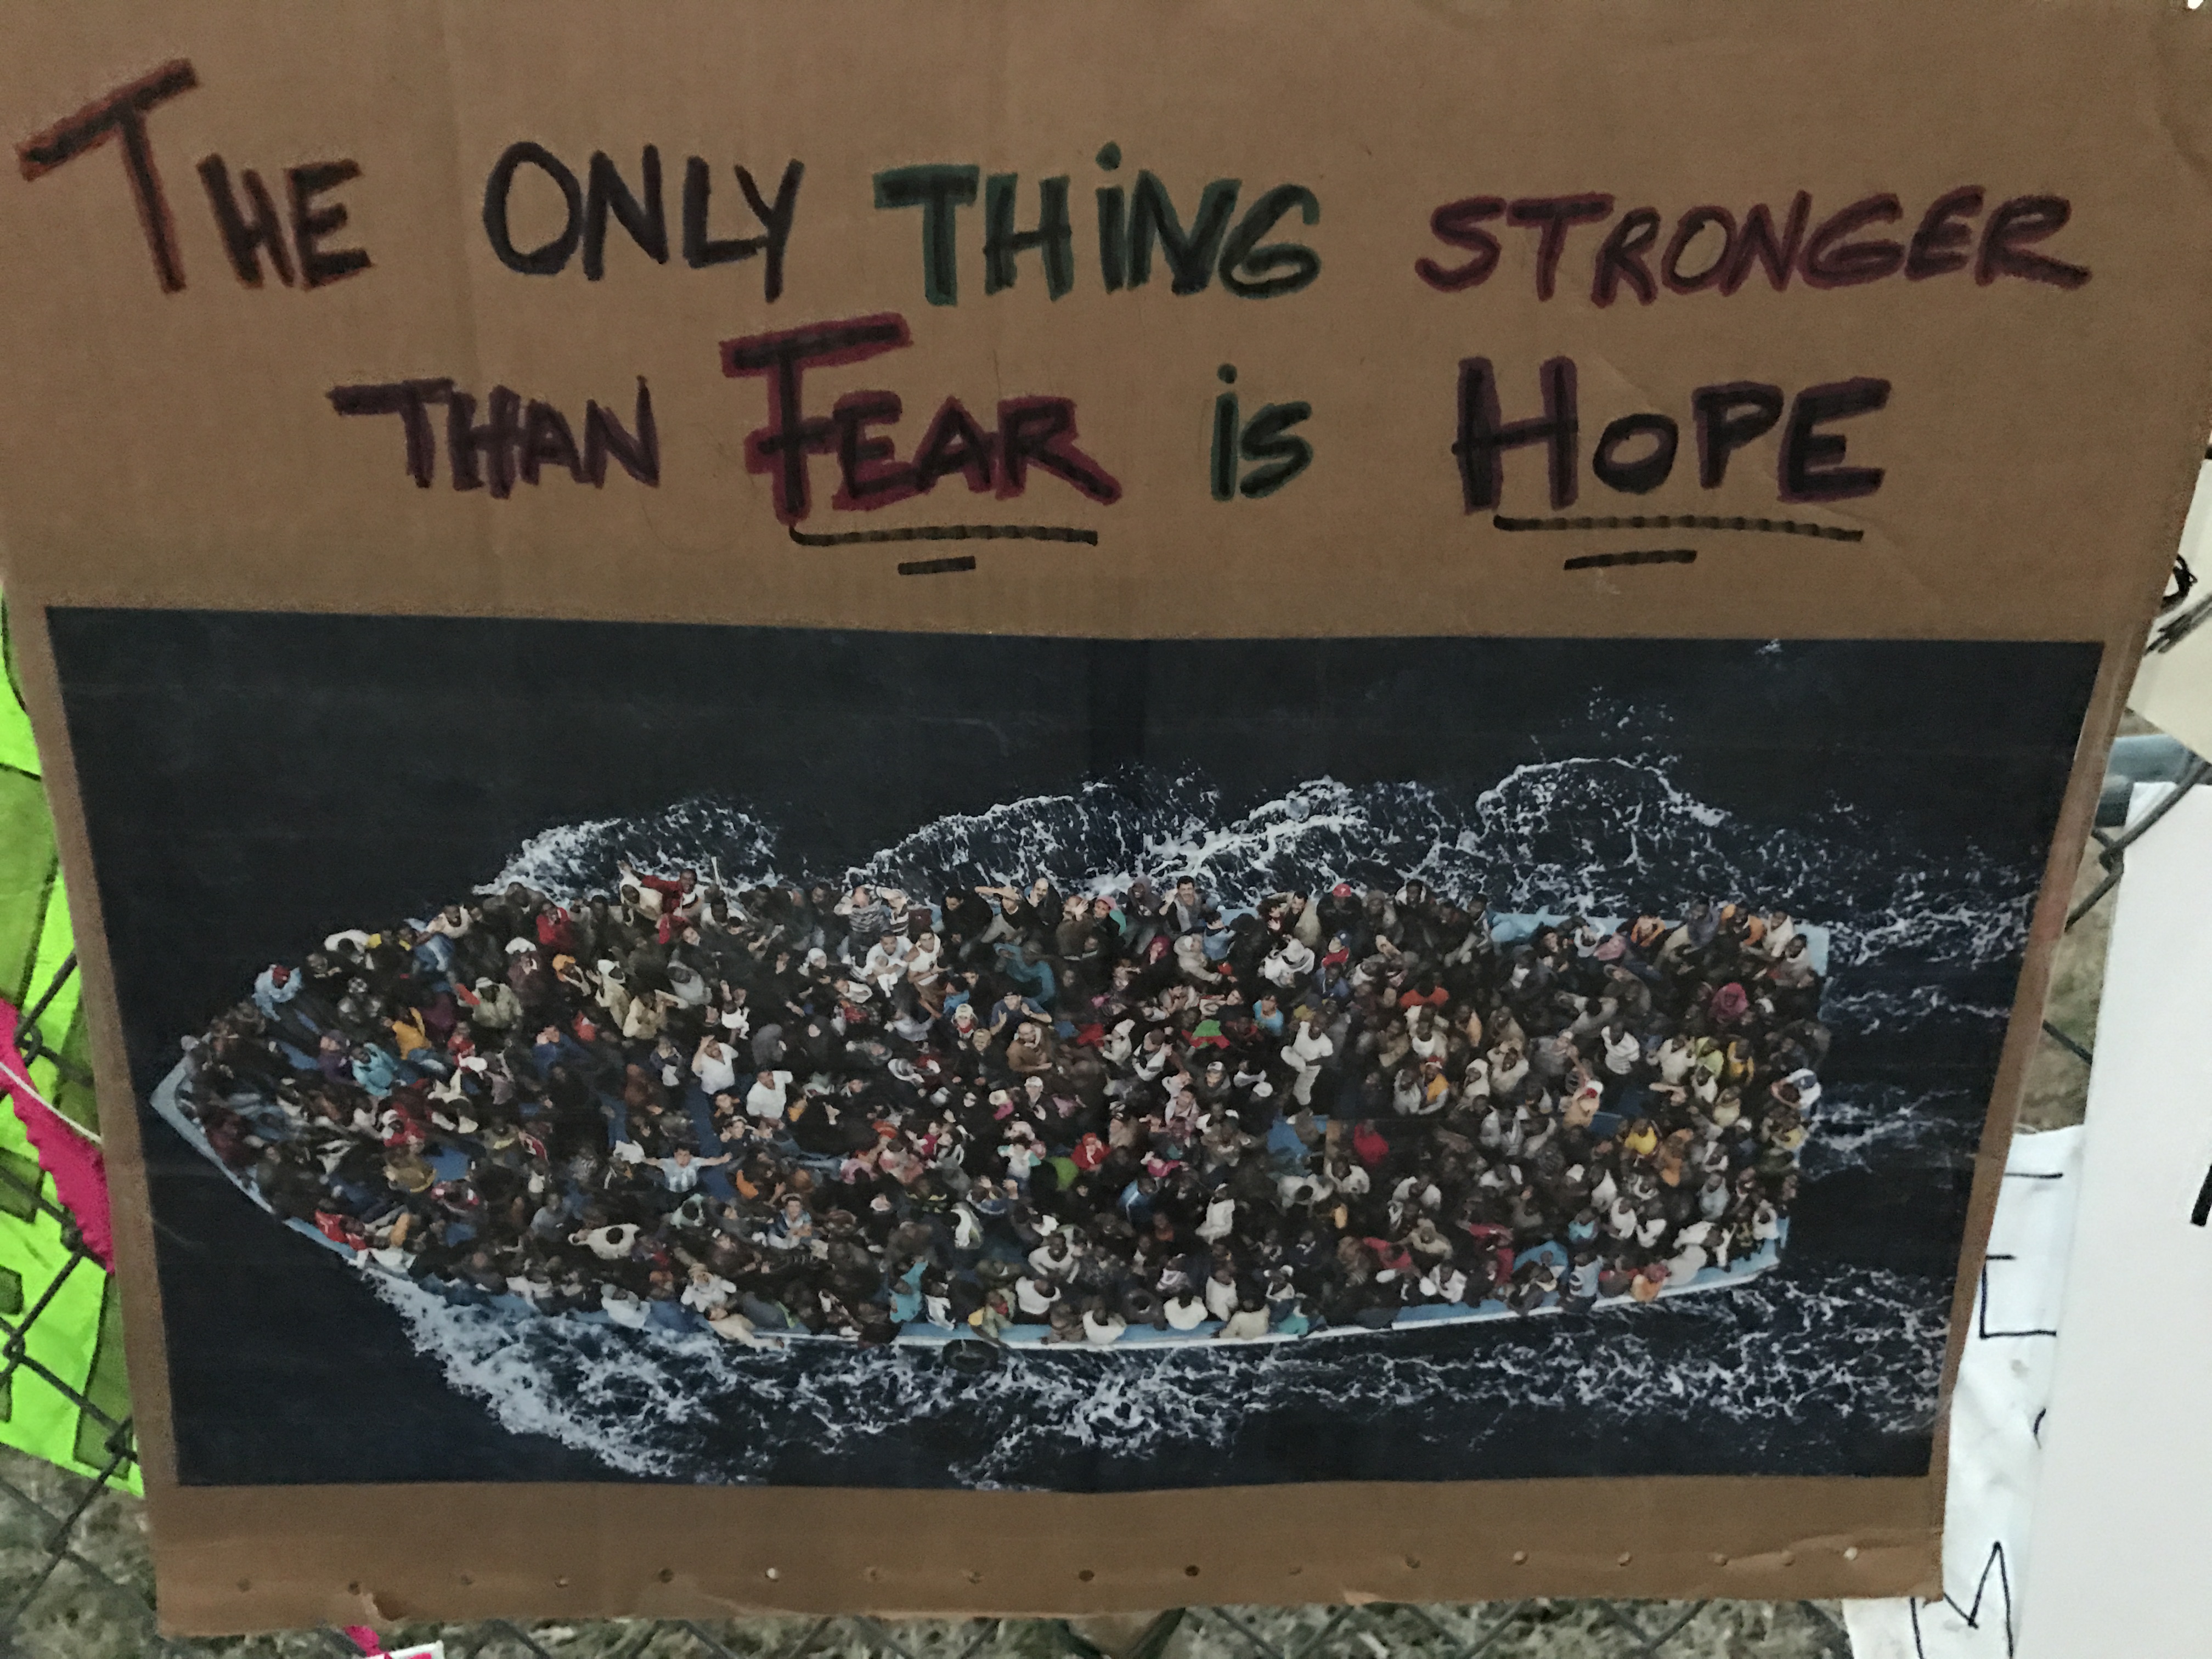 THE ONLY THiNG STRONGER
THAN FEAR iS HOPE